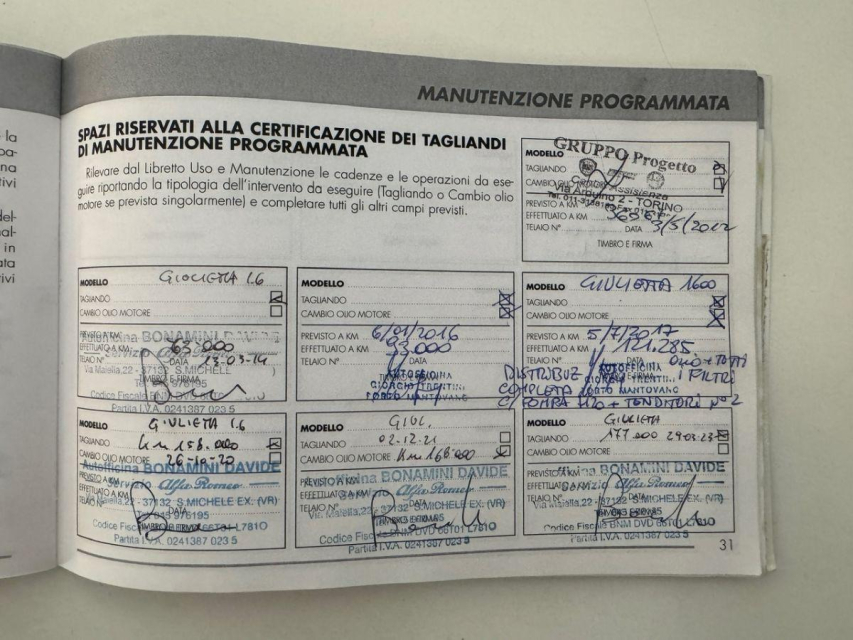 la
pa-
na
tivi
del-
al-
in
ata
ivi
MANUTENZIONE PROGRAMMATA
SPAZI RISERVATI ALLA CERTIFICAZIONE DEI TAGLIANDI
DI MANUTENZIONE PROGRAMMATA
Rilevare dal Libretto Uso e Manutenzione le cadenze e le operazioni da ese-
guire riportando la tipologia dell'intervento da eseguire (Tagliando o Cambio olio
motore se prevista singolarmente) e completare tutti gli altri campi previsti.
GRUPPO Progetto
MODELLO
TAGLIANDO
CAMBIO OLIO
Assistenza
2 - TORINO
PREVISTO A KM
EFFETTUATO A KM
TELAIO N° DATA 3/5/2012
TIMBRO E FIRMA
MODELLO GIULIETTA 1.6
TAGLIANDO
CAMBIO OLIO MOTORE
PREVISTO A KM
Autofficina BONAMINI DAVIDE
EFFETTUATO A KM 63.000
TELAIO N° DATA 13-03-14
Via Maiella,22 - S.MICHELE
TIMBRO E FIRMA
Codice Fiscale
Partita I.V.A. 0241387 023 5
MODELLO
TAGLIANDO
CAMBIO OLIO MOTORE
PREVISTO A KM 6/01/2016
EFFETTUATO A KM 93.000
TELAIO N° DATA
AUTOFFICINA
GIORGIO TRENTINI
PORTO MANTOVANO
MODELLO GIULIETTA 1600
TAGLIANDO
CAMBIO OLIO MOTORE
PREVISTO A KM 5/7/2017
EFFETTUATO A KM 121.285
TELAIO N° DATA OLIO + TUTTI
I FILTRI
DISTRIBUZ
AUTOFFICINA
GIORGIO TRENTINI
COMPLETA PORTO MANTOVANO
C/POMPA H2O + TENDITORI N° 2
MODELLO GIULIETTA 1.6
TAGLIANDO Km 158.000
CAMBIO OLIO MOTORE 26-10-20
Autofficina BONAMINI DAVIDE
PREVISTO A KM
Servizio Alfa Romeo
EFFETTUATO A KM
Via Maiella,22 - 37132 S.MICHELE EX. (VR)
TELAIO N° DATA
TIMBRO E FIRMA
Codice Fiscale BNM DVD 66T01 L781O
Partita I.V.A. 0241387 023 5
MODELLO GIUL.
TAGLIANDO 02-12-21
CAMBIO OLIO MOTORE Km 168000
Autofficina BONAMINI DAVIDE
PREVISTO A KM
Servizio Alfa Romeo
EFFETTUATO A KM
Via Maiella,22 - 37132 S.MICHELE EX. (VR)
TELAIO N° DATA
TIMBRO E FIRMA
Codice Fiscale BNM DVD 66T01 L781O
Partita I.V.A. 0241387 023 5
MODELLO GIULIETTA
TAGLIANDO 177.000 29.03.23
CAMBIO OLIO MOTORE
Autofficina BONAMINI DAVIDE
PREVISTO A KM
Servizio Alfa Romeo
EFFETTUATO A KM
Via Maiella,22 - 37132 S.MICHELE EX. (VR)
TELAIO N° DATA
TIMBRO E FIRMA
Codice Fiscale BNM DVD 66T01 L781O
Partita I.V.A. 0241387 023 5
31